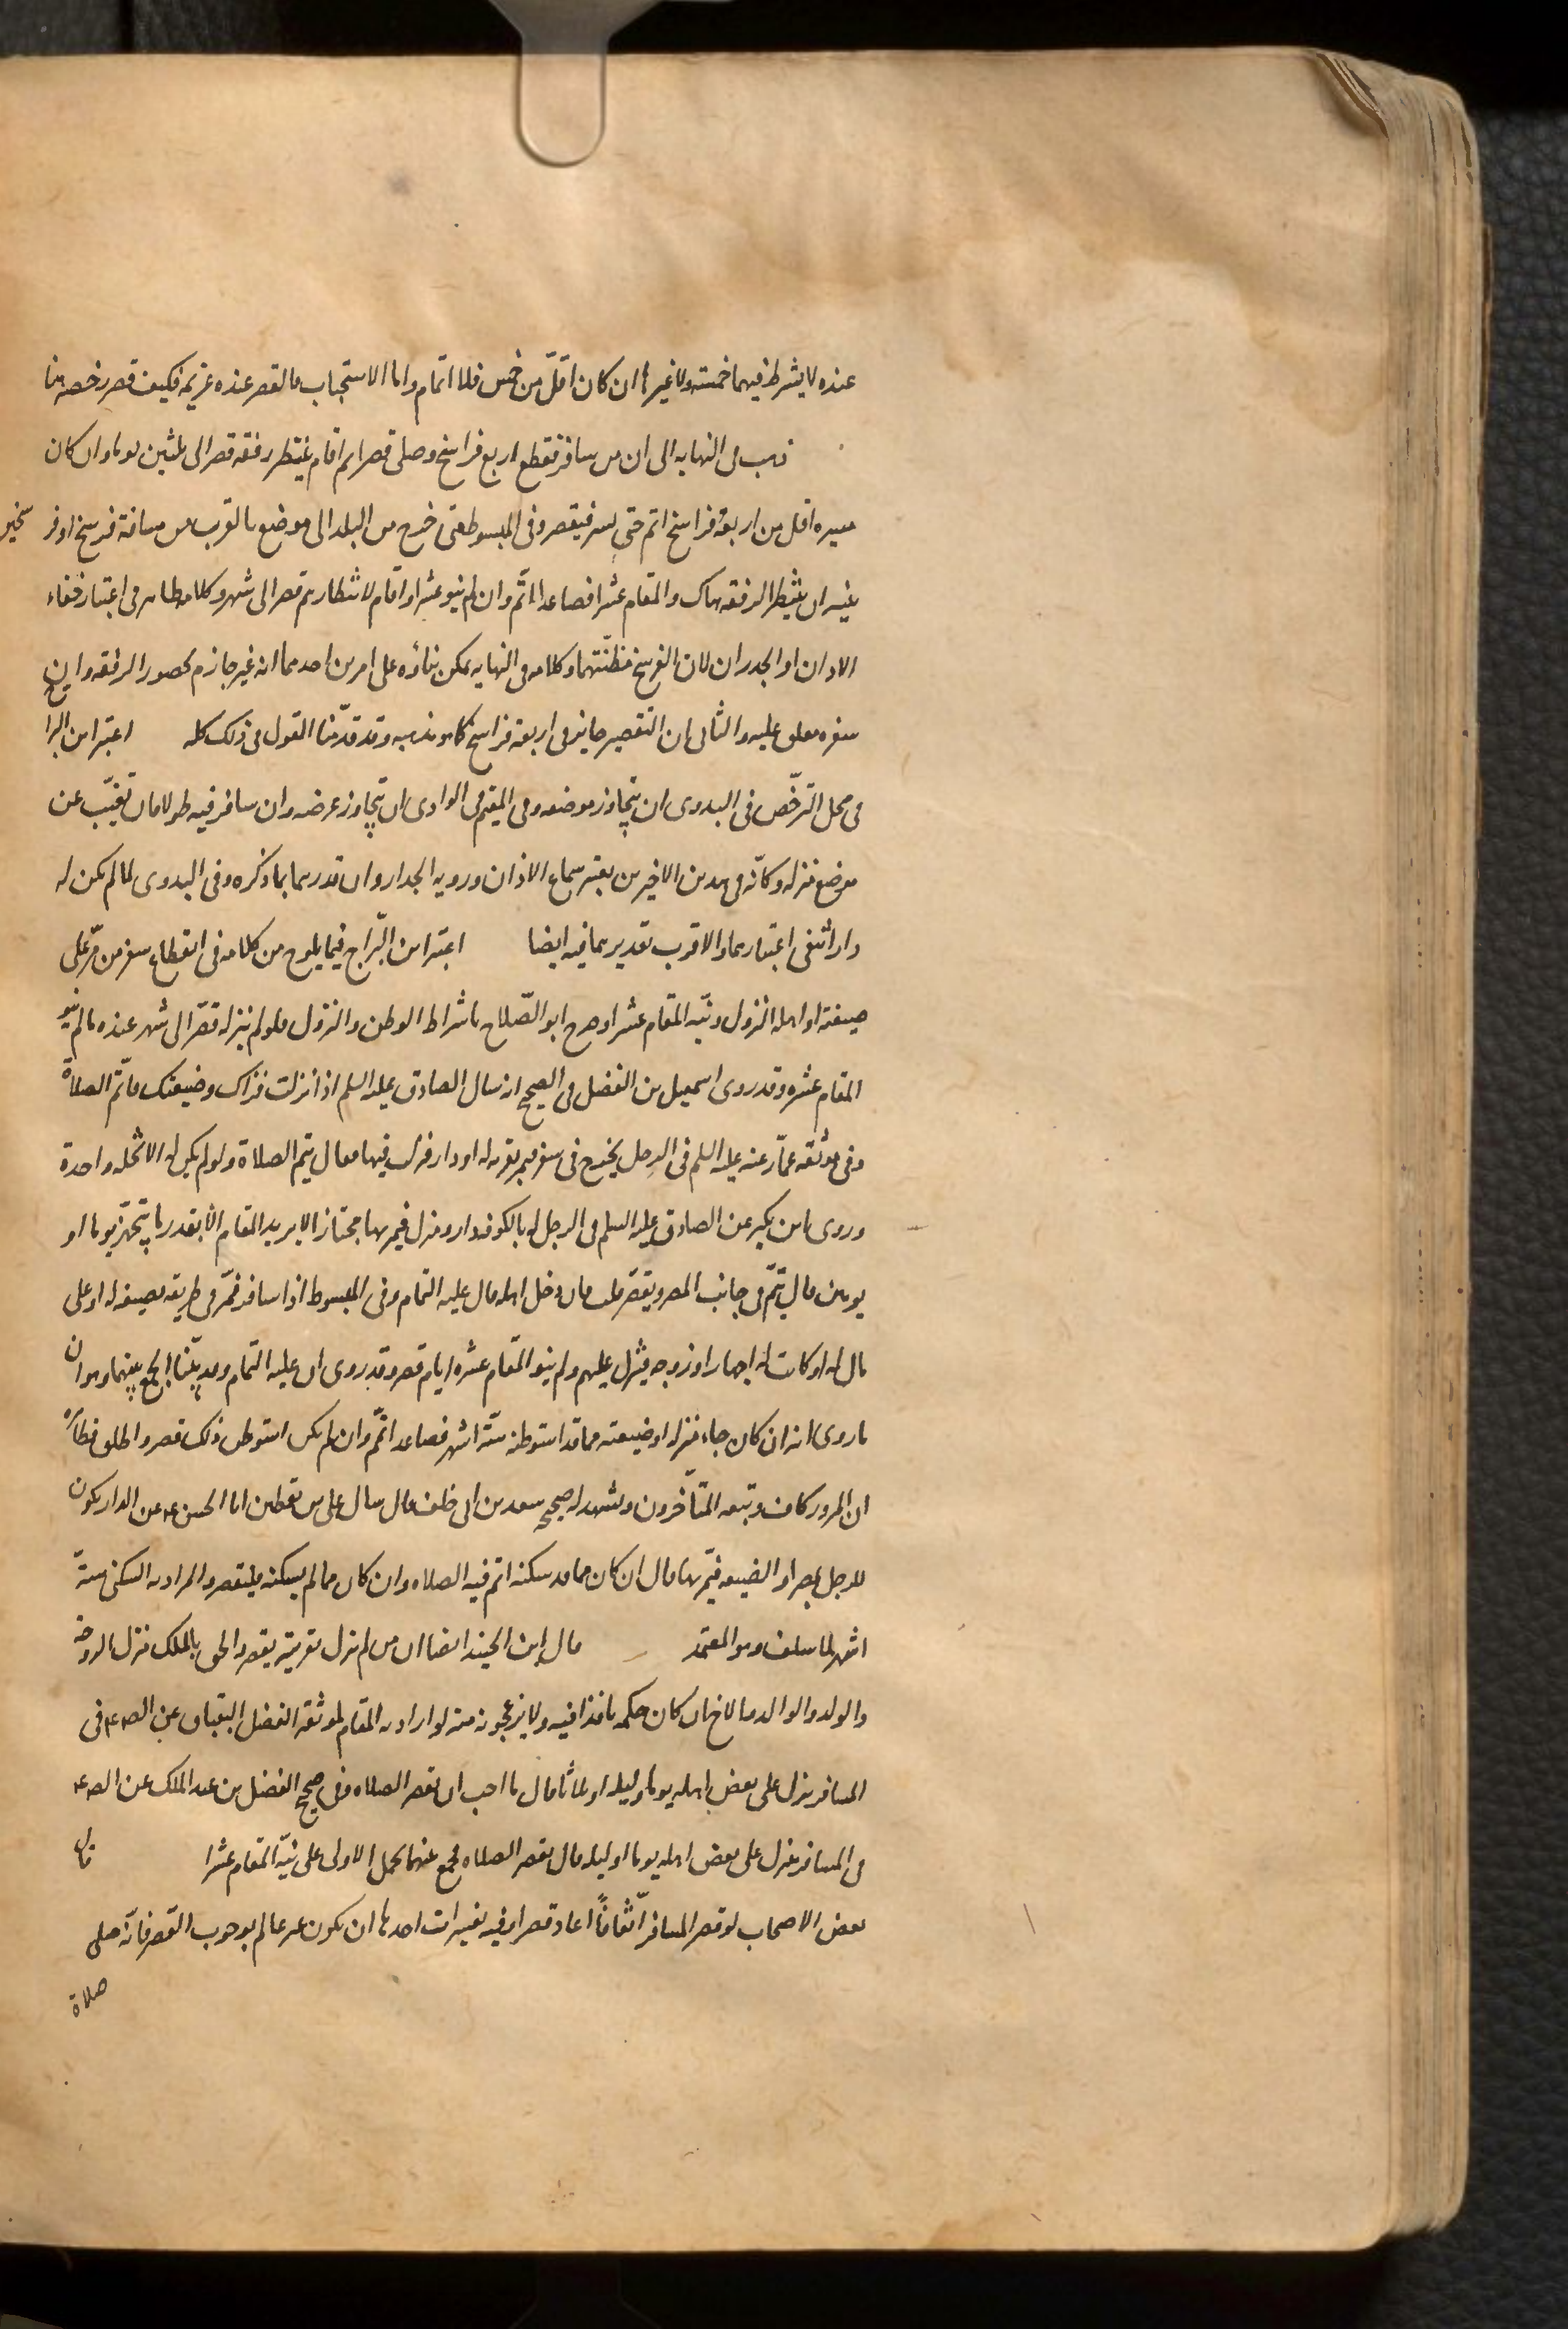 عنده لا يشترط فيهما خمسة ولا غيرها ان كان اقلّ من خمس فلا اتمام واما الاستحباب فالقصر عنده عزيمة فكيف قصر رخصة هنا
ذهب في النهاية الى ان من سافر فقطع اربع فراسخ وصلى قصرا ثم اقام ينتظر رفقة قصر الى ثلثين يوما وان كان
مسيره اقل من اربعة فراسخ اتم حتى يسير فيقصر وفي المبسوط متى خرج من البلد الى موضع بالقرب من مسافة فرسخ او فرسخين
بنية ان ينتظر الرفقة هناك والمقام عشرا فصاعدا اتم وان لم ينو عشرا واقام لانتظارهم قصر الى شهر وكلامه ظاهر في اعتبار خفاء
الاذان او الجدران لان الفرسخ مظنّتهما وكلامه في النهاية يمكن بناؤه على امرين احدهما انه غير جازم لحضور الرفقة وان
سفره معلق عليه والثاني ان التقصير جايز في اربعة فراسخ كما هو مذهبه وقد قدّمنا القول في ذلك كله اعتبر ابن البراج
في محل الترخّص في البدوى ان يتجاوز موضعه وفي المقيم في الوادى ان يتجاوز عرضه وان سافر فيه طولا فان تغيّب عن
موضع منزله وكانّه في هذين الاخيرين يعتبر سماع الاذان ورويه الجدار وان قدرهما بما ذكره وفي البدوى لما لم يكن له
دار انتفى اعتبارهما والاقرب تقديرهما فيه ايضا اعتبر ابن البرّاج فيما يلوح من كلامه في انقطاع سفر من مرّ على
ضيعته او اهله النزول ونيّة المقام عشرا وصرح ابو الصّلاح باشتراط الوطن والنزول فلو لم ينزله قصّر الى شهر عنده ما لم ينو
المقام عشره وقد روى اسمعيل بن الفضل في الصحيح انه سال الصادق عليه السلم اذا نزلت قراك وضيعتك فاتم الصلاة
وفي موثقة عمّار عنه عليه السلم في الرجل يخرج في سفر فيمر بقرية له او دار فنزل فيها فقال يتم الصلاة ولو لم يكن له الا نخله واحدة
وروى ابن بكير عن الصادق عليه السلم في الرجل له بالكوفة دار ومنزل فيمر بها مجتازا لا يريد المقام الا بقدر ما يتجهّز يوما او
يومين قال يتمّ في جانب المصر ويقصر قلت فان دخل اهله قال عليه التمام وفي المبسوط اذا سافر فمرّ في طريقه بضيعة له او على
مال له او كانت له اصهار او زوجه فينزل عليهم ولم ينو المقام عشره ايام قصر وقد روى ان عليه التمام وقد بيّنا الجمع بينهما وهو ان
ما روى انه ان كان جاء منزله او ضيعته مما قد استوطنه ستّة اشهر فصاعدا اتمّ وان لم يكن استوطن ذلك قصر واطلق
ان المرور كاف وتبعه المتأخّرون ويشهد له صحيح سعد بن ابى خلف قال سال على بن يقطين ابا الحسن ع عن الدار يكون
للرجل بمصر او الضيعه فيمرّ بها قال ان كان مما قد سكنه اتم فيه الصلاه وان كان مما لم يسكنه فليقصر والمراد به السكنى ستّة
اشهر لما سلف وهو المعتمد قال ابن الجنيد ايضا ان من لم ينزل بقريته يقصر والحق بالملك منزل الزوجة
والولد والوالد والاخ ان كان حكمه نافذا فيه ولا يزعجونه منه لو اراد به المقام لموثقة الفضل البقباق عن الص ع في
المسافر ينزل على بعض اهله يوما وليله او ثلاثا قال ما احب ان يقصر الصلاه وفي صحيح الفضل بن عبد الملك عن الص ع
في المسافر ينزل على بعض اهله يوما او ليله قال يقصر الصلاه فجمع عنهما بحمل الاولى على نيّة المقام عشرا قال
بعض الاصحاب لو قصر المسافر اتفاقاً اعاد قصرا وفيه تفسيرات احدها ان يكون غير عالم بوجوب القصر فانّه صلى
صلاة